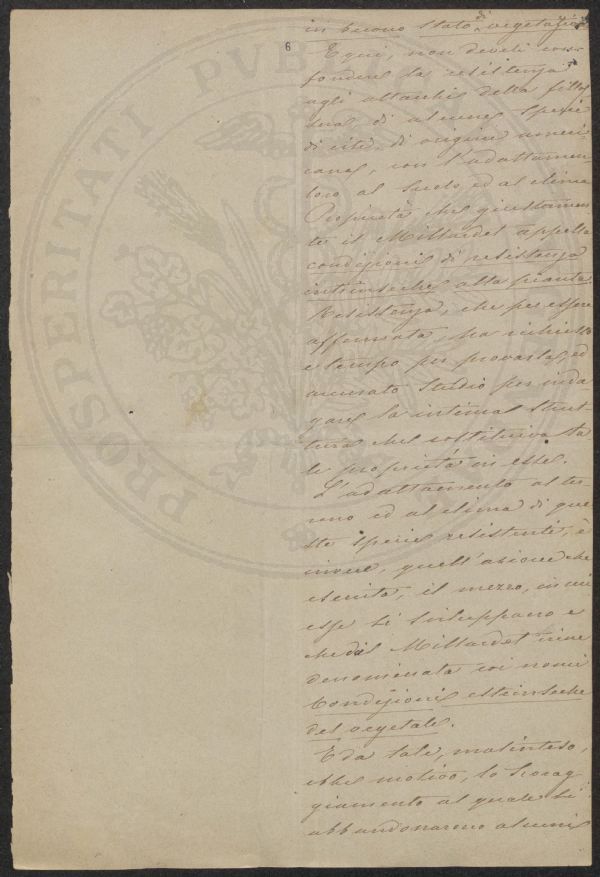 6
in buono stato di vegetazione
E qui, non devesi con-
fondere la resistenza
agli attacchi della filos
sera, di alcune specie
di viti, di origine ameri
cana, con l'adattamen
toro al suolo, ed al clima
Proprietà che giustamen
te il Millardet appella
condizioni di resistenza
intrinseche alla pianta.
Resistenza, che per essere
affermata, ha richiesto
e tempo per provarla, ed
accurato studio per inda
gare la intima strut-
tura che costituiva ta
le proprietà in esse.
L'adattamento al ter-
reno ed al clima di que-
ste specie resistenti, è
invece, quell'azione che
esercita, il mezzo, in cui
esse si sviluppano e
che dal Millardet viene
denominata coi nomi
Condizioni estrinseche
del vegetale.
E da tale, malinteso,
ebbe motivo, lo scorag
giamento al quale si
abbandonarono alcuni
PROSPERITATI PVBL